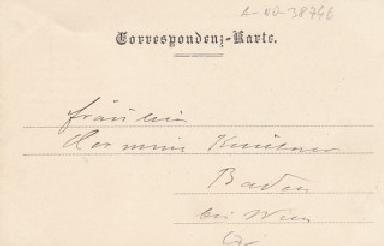 A-NO-38746
Correspondenz-Karte.
Fräulein
Hermine
Baden
bei Wien